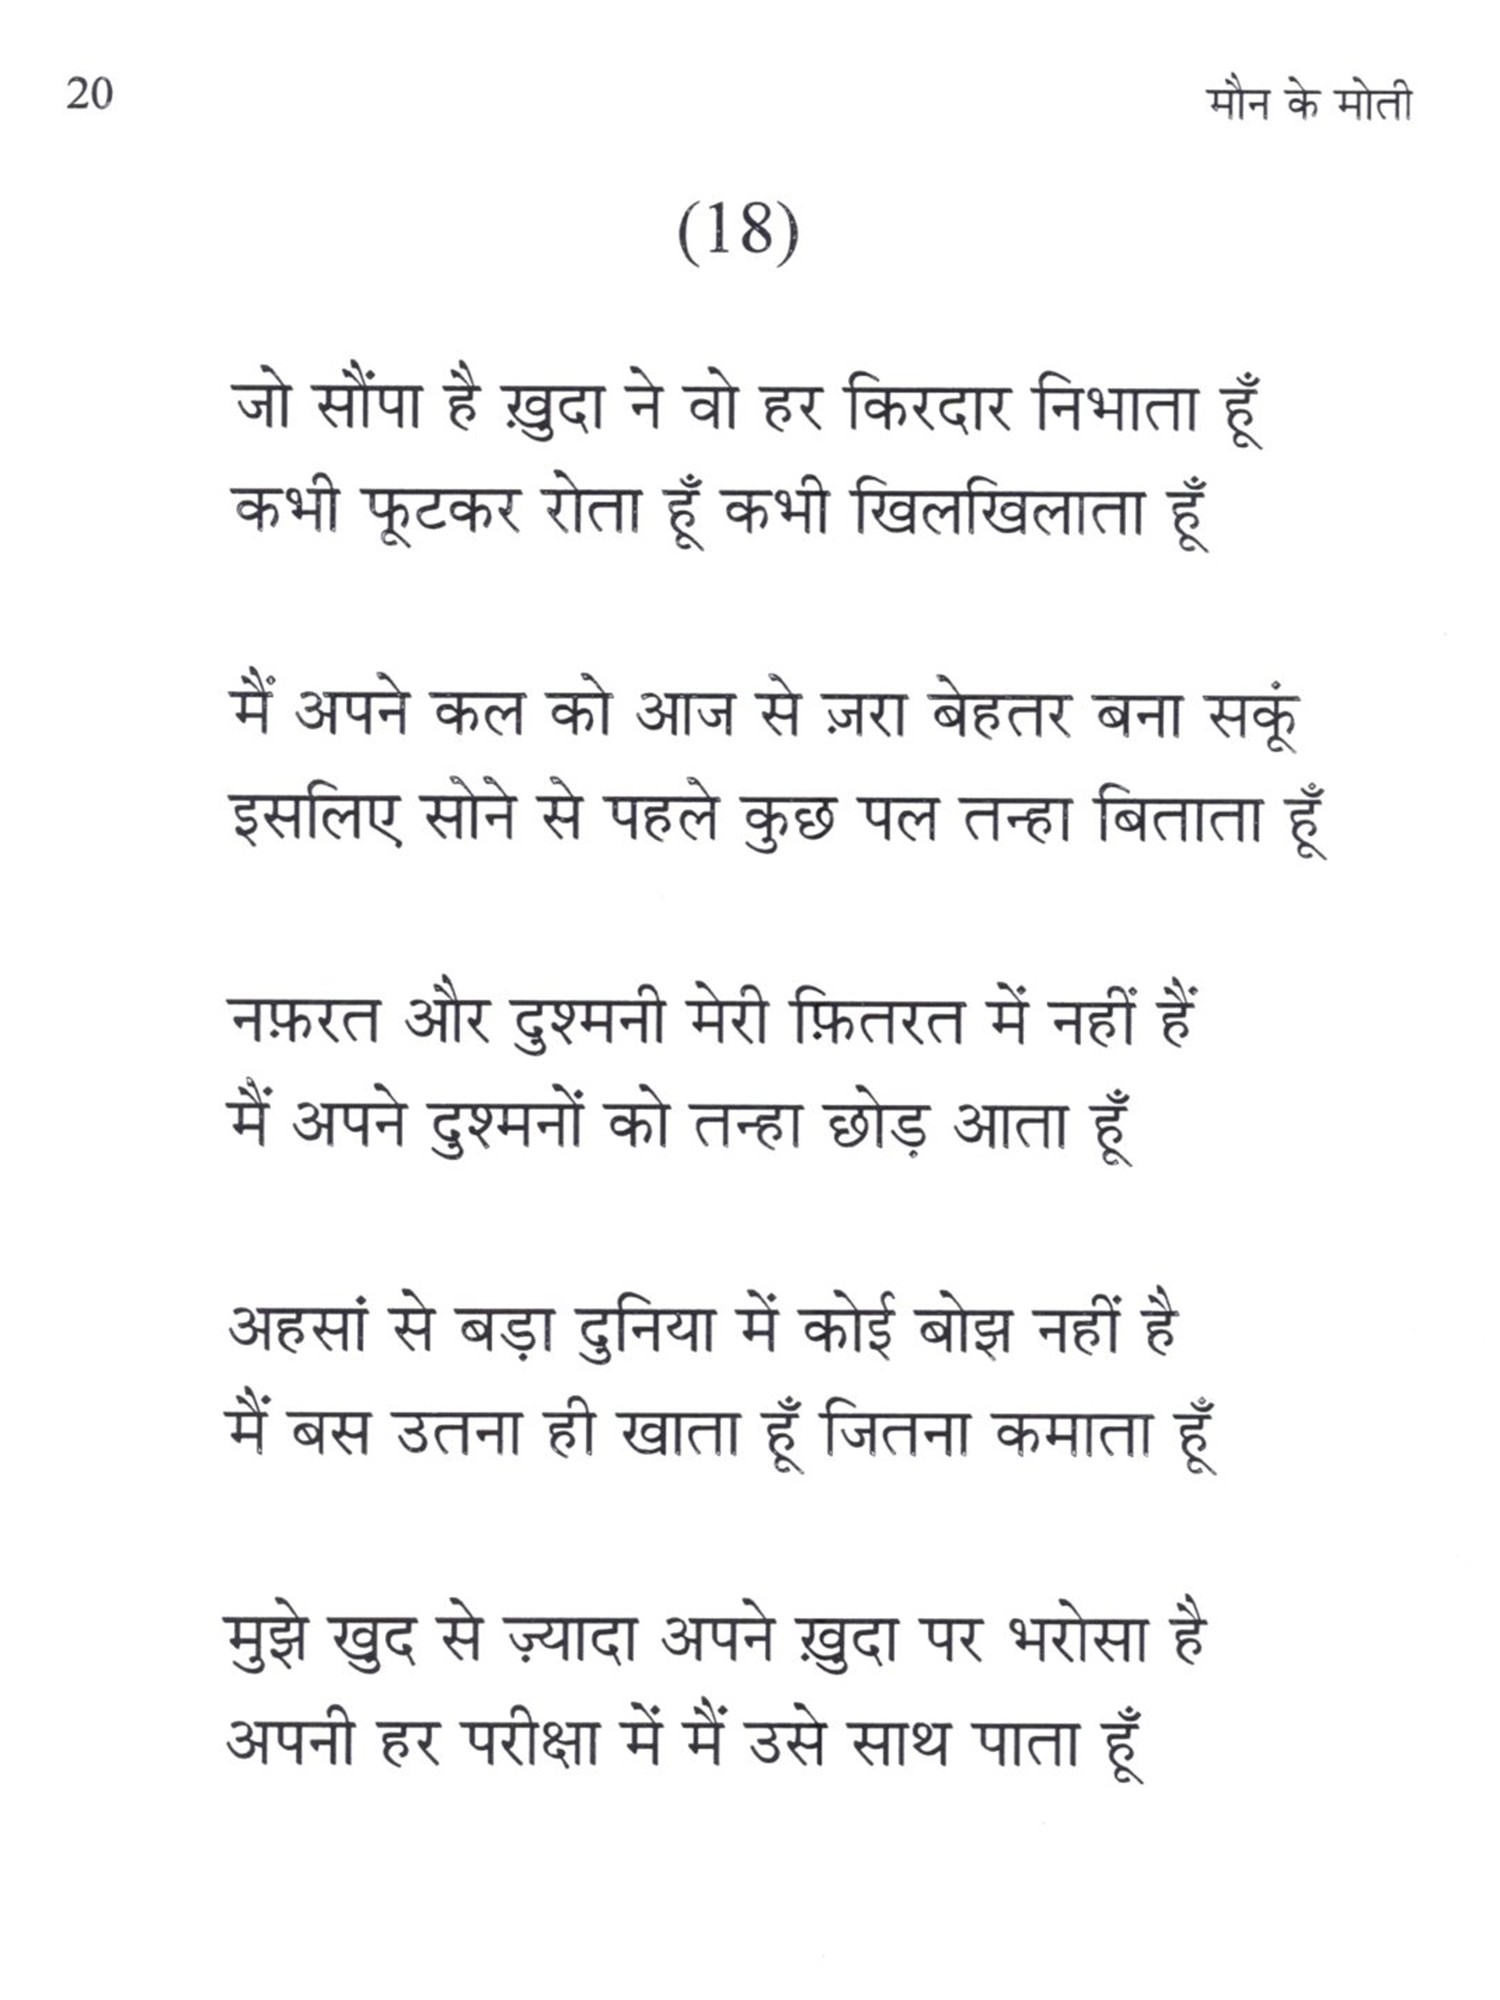 20
मौन के मोती
(18)
जो सौंपा है ख़ुदा ने वो हर किरदार निभाता हूँ
कभी फूटकर रोता हूँ कभी खिलखिलाता हूँ
मैं अपने कल को आज से ज़रा बेहतर बना सकूं
इसलिए सोने से पहले कुछ पल तन्हा बिताता हूँ
नफ़रत और दुश्मनी मेरी फ़ितरत में नहीं हैं
मैं अपने दुश्मनों को तन्हा छोड़ आता हूँ
अहसां से बड़ा दुनिया में कोई बोझ नहीं है
मैं बस उतना ही खाता हूँ जितना कमाता हूँ
मुझे खुद से ज़्यादा अपने ख़ुदा पर भरोसा है
अपनी हर परीक्षा में मैं उसे साथ पाता हूँ